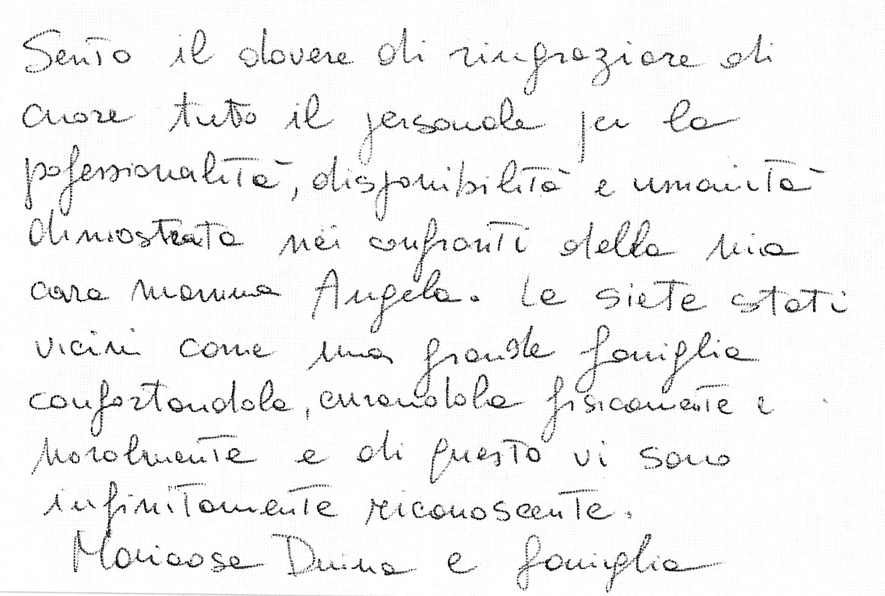 Sento il dovere di ringraziare di
cuore tutto il personale per la
pofessionalità, disponibilità e umanità
dimostrata nei confronti della mia
cara mamma Angela. Le siete stati
vicini come una grande famiglia
confortandola, curandola fisicamente e
moralmente e di questo vi sono
infinitamente riconoscente.
Mariarosa Duina e famiglia